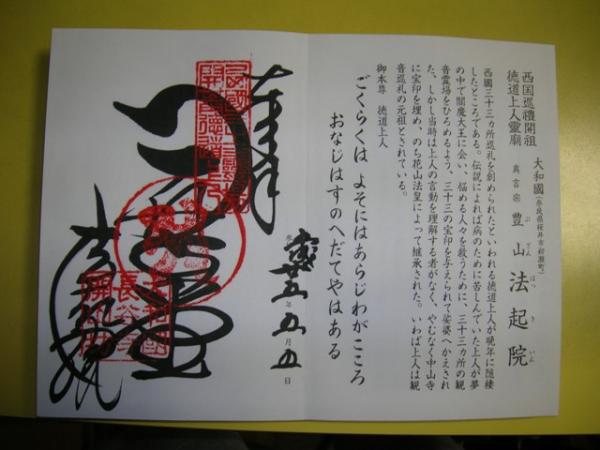 西国巡禮開祖
徳道上人靈廟
大和國(奈良県桜井市初瀬町)
真言宗 豊山 法起院
ぶざん ほっきいん
西國三十三ヵ所巡礼を創められたといわれる徳道上人が晩年に隠棲
したところである。伝説によれば病のために苦しんでいた上人が夢
の中で閻魔大王に会い、悩める人々を救うために、三十三ヵ所の観
音霊場をひろめるよう、三十三の宝印を与えられて娑婆へかえされ
た、しかし当時は上人の言動を理解する者がなく、やむなく中山寺
に宝印を埋め、のち花山法皇によって継承された。いわば上人は観
音巡礼の元祖とされている。
御本尊 徳道上人
ごくらくは よそにはあらじわがこころ
おなじはすのへだてやはある
年五月五日
奉拝
大和國
長谷寺
開山坊